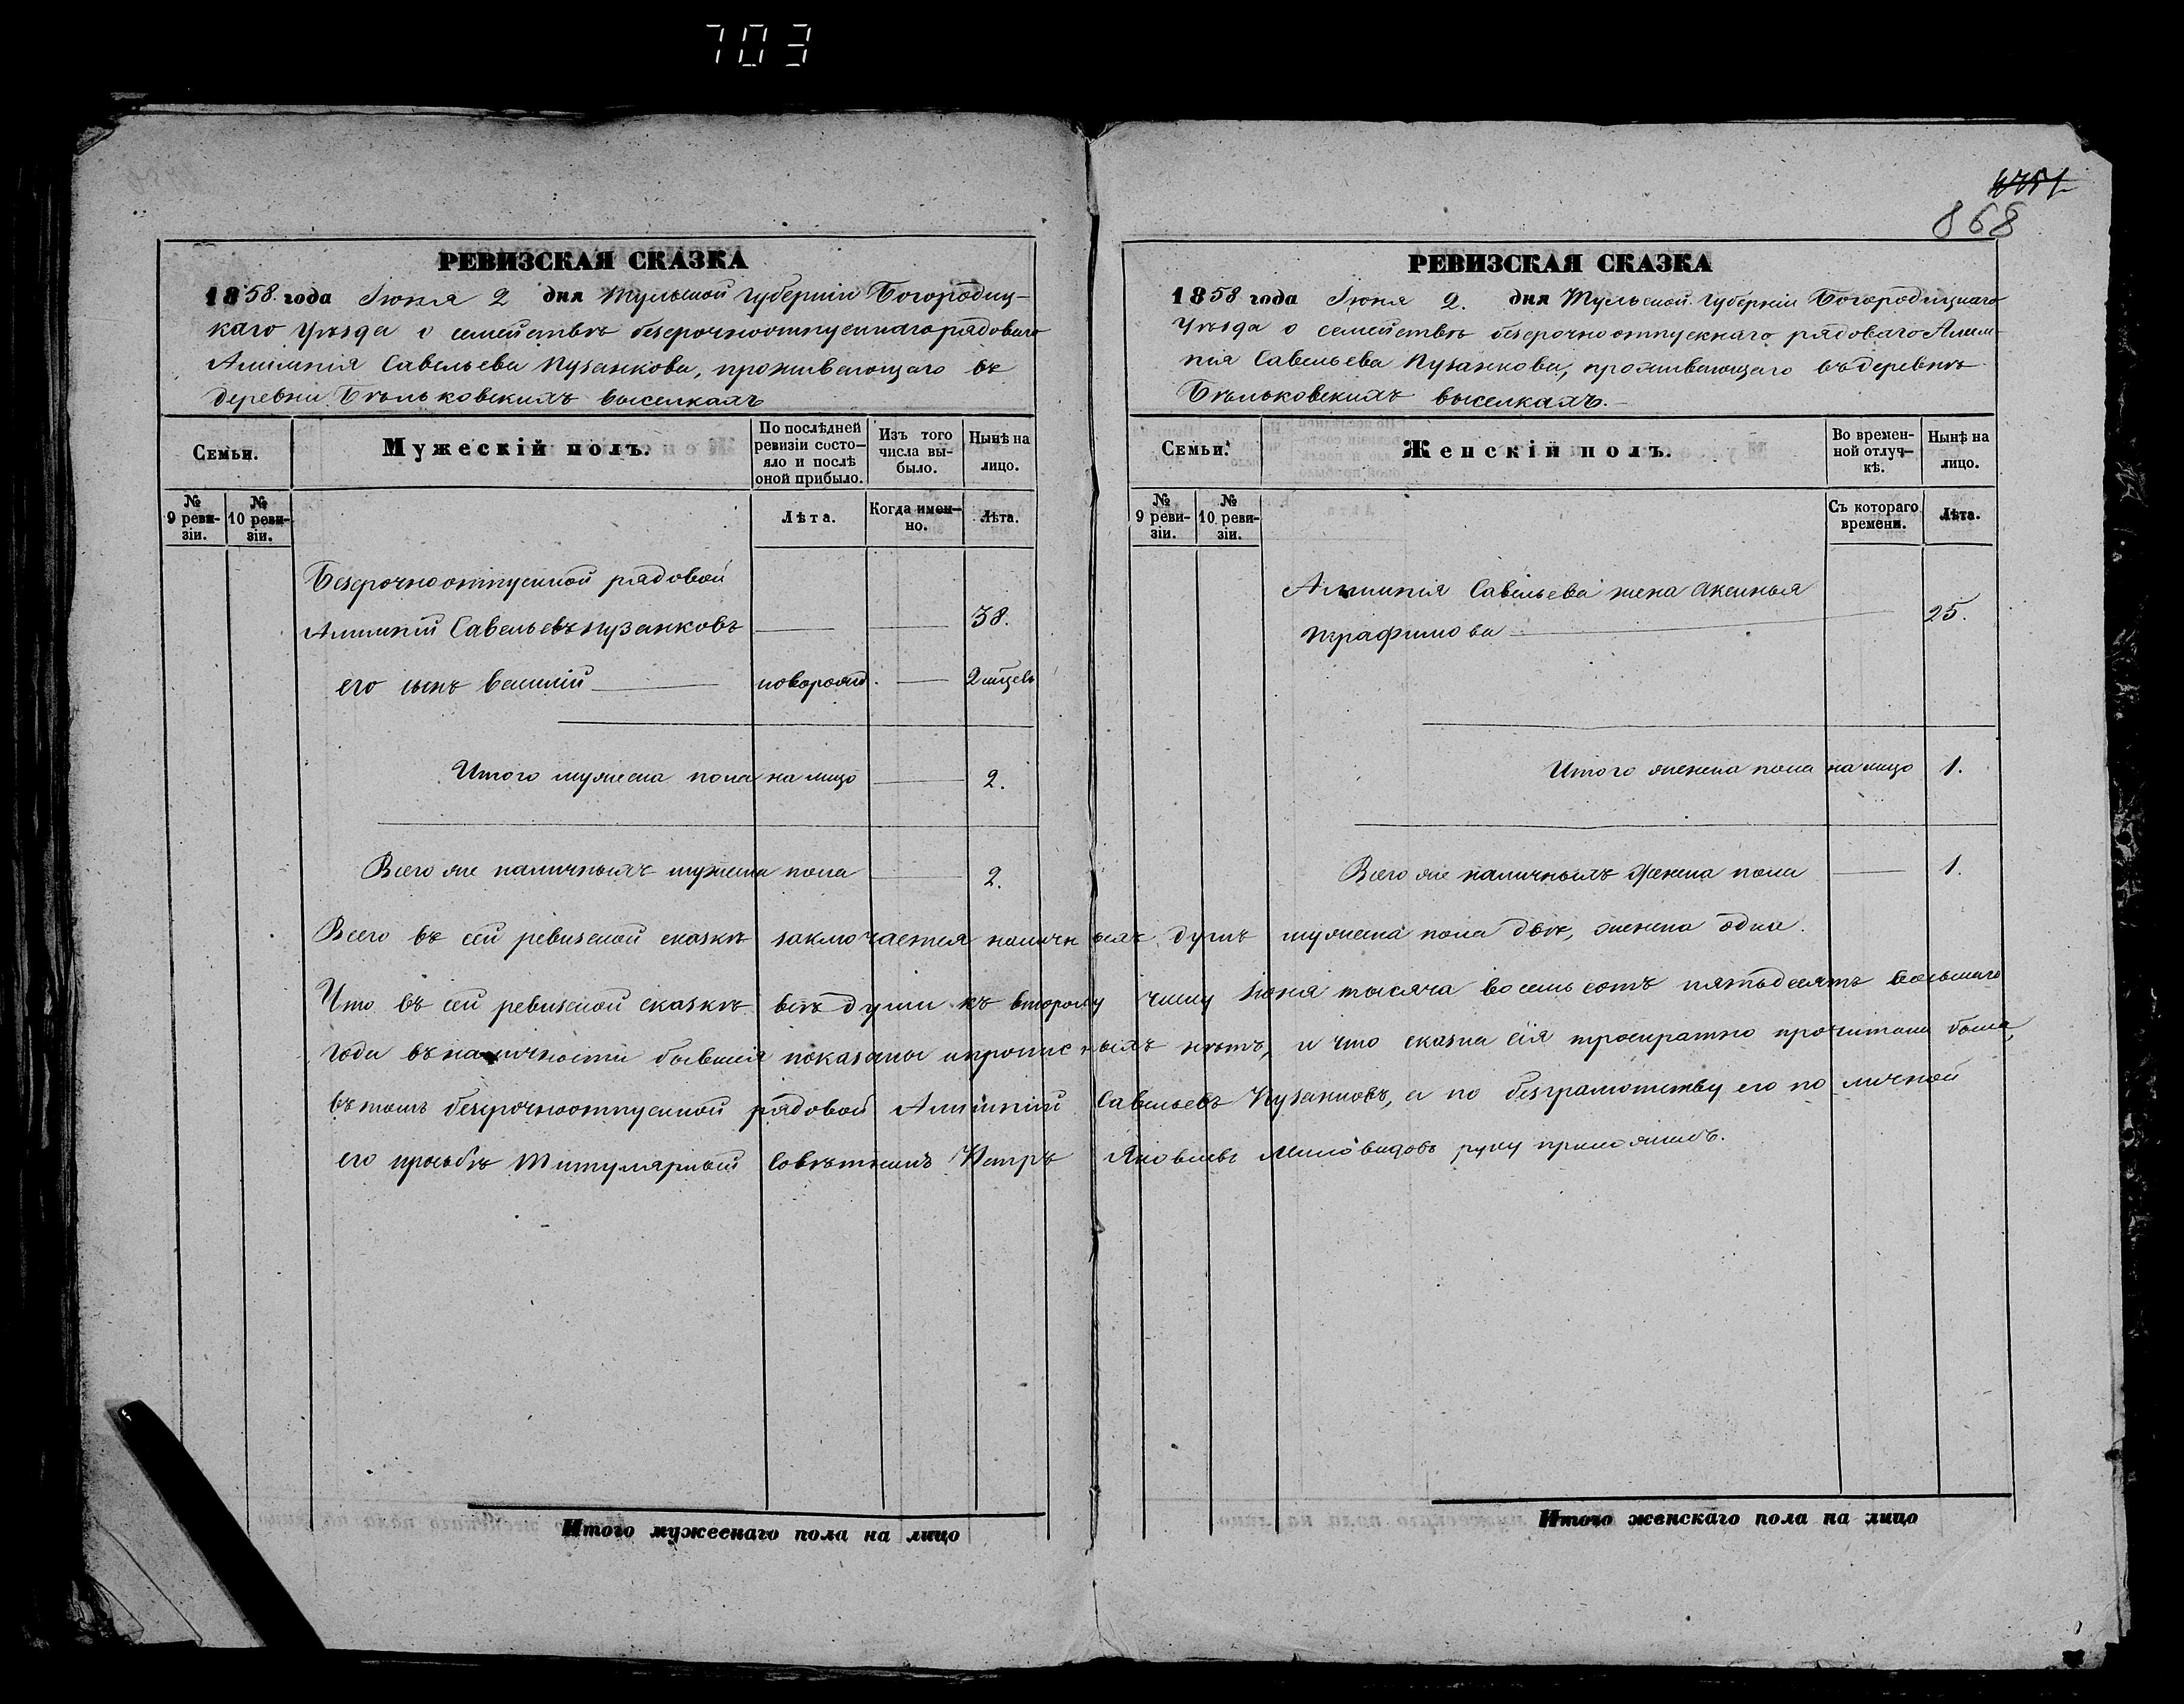 703
4751
868
РЕВИЗСКАЯ СКАЗКА
1858 года Іюня 2 дня Тульской Губерніи Богородиц-
каго Уѣзда о семействѣ безсрочноотпускнаго рядоваго
Алимпія Савельева Пузанкова, проживающаго въ
деревни Бѣльковскихъ выселкахъ
Семьи.
Мужескій полъ.
По послѣдней ревизіи состо-
яло и послѣ оной прибыло.
Изъ того числа вы-
было.
Нынѣ на лицо.
№ 9 реви-
зіи.
№ 10 реви-
зіи.
Лѣта.
Когда имен-
но.
Лѣта.
Безсрочноотпускной рядовой
Алимпій Савельевъ Пузанковъ 38.
его сынъ Василій новорожд. 2 мѣсецъ
Итого мужеска пола на лицо 2.
Всего же наличныхъ мужеска пола 2.
РЕВИЗСКАЯ СКАЗКА
1858 года Іюня 2. дня Тульской Губерніи Богородицкаго
Уѣзда о семействѣ безсрочноотпускнаго рядоваго Алим-
пія Савельева Пузанкова, проживающаго въ деревнѣ
Бѣльковскихъ выселкахъ.
Семьи.
Женскій полъ.
Во времен-
ной отлуч-
кѣ.
Нынѣ на лицо.
№ 9 реви-
зіи.
№ 10 реви-
зіи.
Съ котораго времени.
Лѣта.
Алимпія Савельева жена Аксинья
Трафимова 25.
Итого женска пола на лицо 1.
Всего же наличныхъ женска пола 1.
Всего въ сей ревизской сказкѣ заключается наличныхъ душъ мужеска пола двѣ, женска одна.
Что въ сей ревизской сказкѣ всѣ души къ второму числу Іюня тысяча восемь сотъ пятьдесятъ восьмаго
года въ наличности бывшія показаны и прописныхъ нѣтъ, и что сказка сія троекратно прочитана была,
въ томъ безсрочноотпускной рядовой Алимпій Савельевъ Пузанковъ, а по безграмотству его по личной
его просьбѣ Титулярный Совѣтникъ Петръ Яковлевъ Миловидовъ руку приложилъ.
Итого мужескаго пола на лицо
Итого женскаго пола на лицо